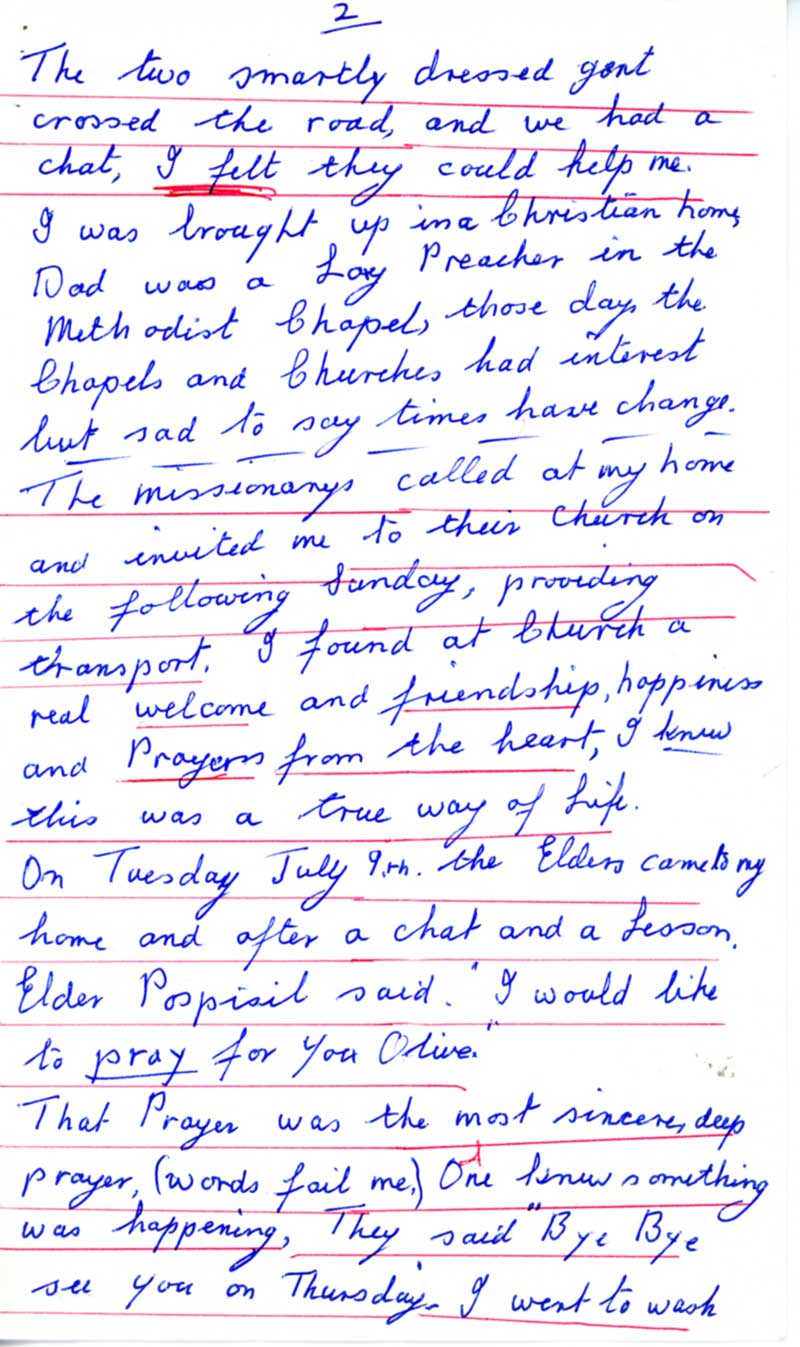 2
The two smartly dressed gent
crossed the road, and we had a
chat, I felt they could help me.
I was brought up in a Christian home,
Dad was a Lay Preacher in the
Methodist Chapel, those days the
Chapels and Churches had interest
but sad to say times have change.
The missionarys called at my home
and invited me to their Church on
the following Sunday, providing
transport. I found at Church a
real welcome and friendship, happiness
and Prayers from the heart, I knew
this was a true way of Life.
On Tuesday July 9.th. the Elders came to my
home and after a chat and a Lesson.
Elder Pospisil said. "I would like
to pray for You Olive."
That Prayer was the most sincere, deep
prayer, (words fail me,) One knew something
was happening, They said "Bye Bye
see You on Thursday. I went to wash